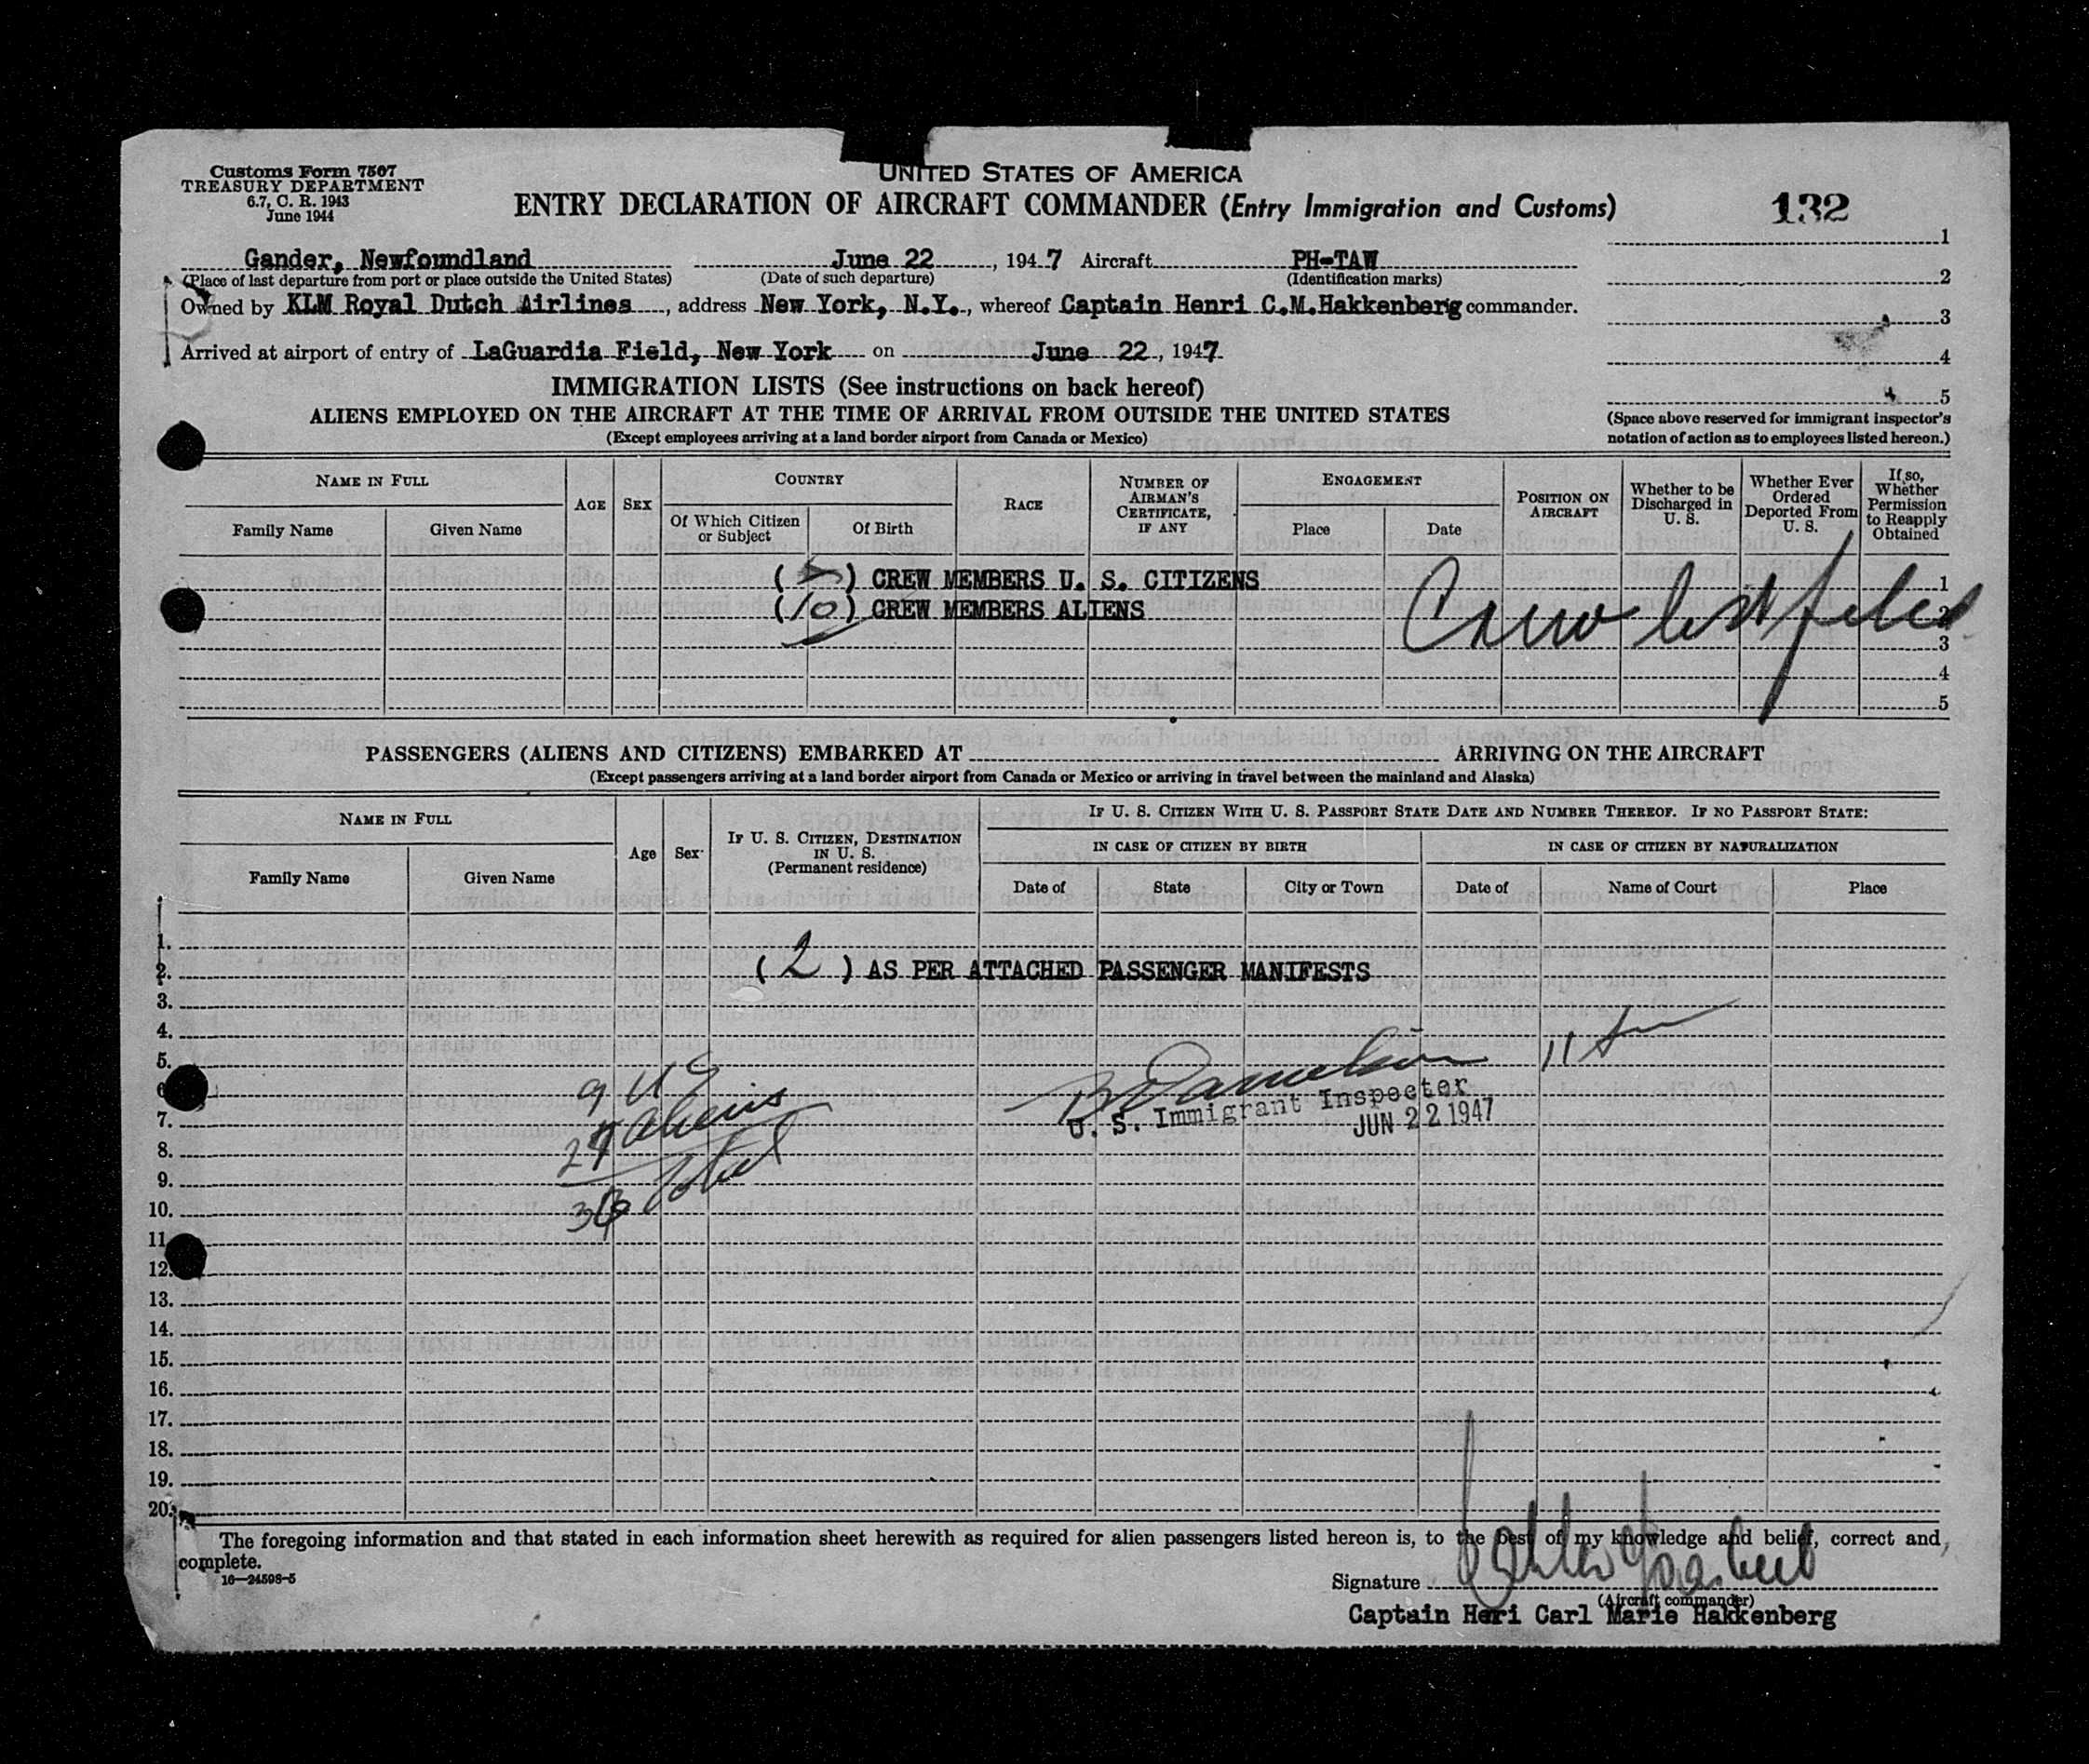 Customs Form 7507
TREASURY DEPARTMENT
6.7, C. R. 1943
June 1944
UNITED STATES OF AMERICA
ENTRY DECLARATION OF AIRCRAFT COMMANDER (Entry Immigration and Customs)
132
Gander, Newfoundland June 22, 1947 Aircraft PH-TAW
(Place of last departure from port or place outside the United States) (Date of such departure) (Identification marks)
Owned by KLM Royal Dutch Airlines, address New York, N.Y., whereof Captain Henri C.M.Hakkenberg commander.
Arrived at airport of entry of LaGuardia Field, New York on June 22, 1947.
1
2
3
4
5
(Space above reserved for immigrant inspector's
notation of action as to employees listed hereon.)
IMMIGRATION LISTS (See instructions on back hereof)
ALIENS EMPLOYED ON THE AIRCRAFT AT THE TIME OF ARRIVAL FROM OUTSIDE THE UNITED STATES
(Except employees arriving at a land border airport from Canada or Mexico)
NAME IN FULL
Family Name
Given Name
AGE
SEX
COUNTRY
Of Which Citizen
or Subject
Of Birth
RACE
NUMBER OF
AIRMAN'S
CERTIFICATE,
IF ANY
ENGAGEMENT
Place
Date
POSITION ON
AIRCRAFT
Whether to be
Discharged in
U. S.
Whether Ever
Ordered
Deported From
U. S.
If so,
Whether
Permission
to Reapply
Obtained
( ) CREW MEMBERS U. S. CITIZENS
(10) CREW MEMBERS ALIENS
Crew list filed
1
2
3
4
5
PASSENGERS (ALIENS AND CITIZENS) EMBARKED AT ARRIVING ON THE AIRCRAFT
(Except passengers arriving at a land border airport from Canada or Mexico or arriving in travel between the mainland and Alaska)
NAME IN FULL
Family Name
Given Name
Age
Sex
IF U. S. CITIZEN, DESTINATION
IN U. S.
(Permanent residence)
IF U. S. CITIZEN WITH U. S. PASSPORT STATE DATE AND NUMBER THEREOF. IF NO PASSPORT STATE:
IN CASE OF CITIZEN BY BIRTH
IN CASE OF CITIZEN BY NATURALIZATION
Date of
State
City or Town
Date of
Name of Court
Place
1.
2. (2) AS PER ATTACHED PASSENGER MANIFESTS
3.
4.
5.
6. 9 US
7. aliens
U. S. Immigrant Inspector
JUN 22 1947
8.
9. Total
10.
11.
12.
13.
14.
15.
16.
17.
18.
19.
20.
The foregoing information and that stated in each information sheet herewith as required for alien passengers listed hereon is, to the best of my knowledge and belief, correct and
complete.
16—24598-5
Signature
(Aircraft commander)
Captain Heri Carl Marie Hakkenberg